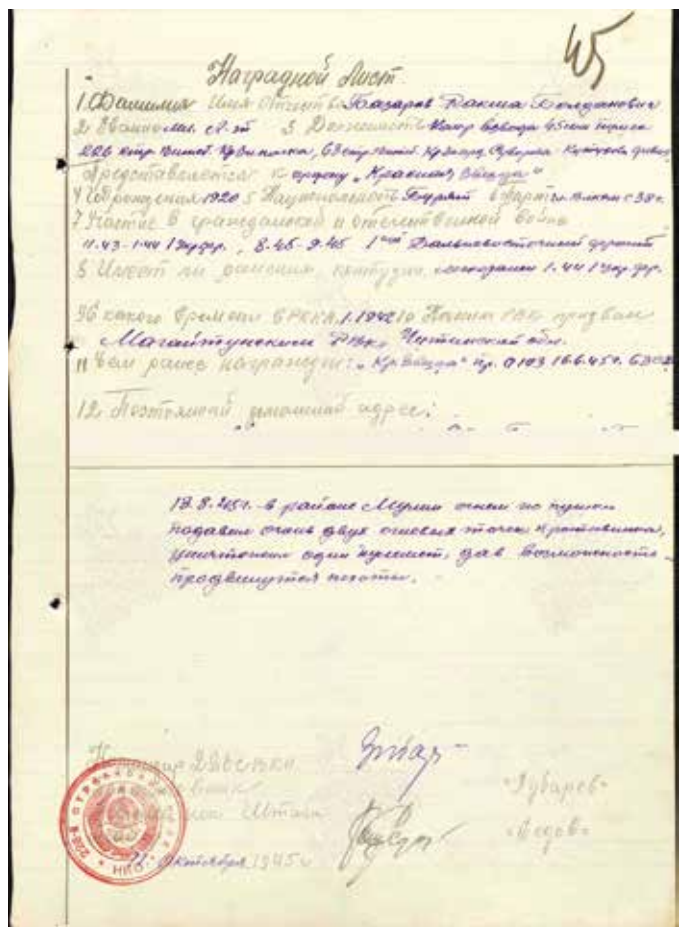 45
Наградной Лист.
1. Фамилия Имя Отчество Базаров Бакша Болданович
2 Звание мл. л-т 3 Должность Ком-р взвода 45мм
226 стр. Витеб. Кр. Зн. полка, 63 стр. Витеб. Кр. Зн. орд. Суворова
Представляется к ордену „Красная Звезда"
4 Год рождения 1920 5 Национальность Бурят 6 Парт. чл. ВЛКСМ с 38г.
7 Участие в гражданской и отечественной войне
11.43-1.44 1 Укр.фр., 8.45-9.45 1ый Дальневосточный фронт
8 Имеет ли ранения, контузии 1.44 1 Укр. фр.
9 С какого времени в РККА 1.1942 10 Каким РВК призван
Могойтуйским РВК, Читинской обл.
11 Чем ранее награжден: „Кр. Звезда" пр. 0103 16.6.45г. 63 СД
12 Постоянный домашний адрес:
13.8.45г. в районе Мулин огнем из пушки
подавил огонь двух огневых точек противника,
уничтожил один пулемет, дав возможность
продвинуться пехоты.
Командир 226 Стр. полка
Начальник Штаба
"Зубарев"
"Федов"
НКО
Октября 1945 г